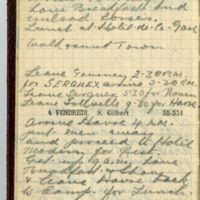 have Breakfast and
unload horses.
Lunch at Hotel-de-la-Gare
Walk round Town
Leave Gournay 2-30 P.M.
for SERQUEX arrive 3-20 P.M.
Leave for Rouen
Leave Sotteville 9-30 for Havre
4 VENDREDI. S. Gilbert 35-331
Arrive Havre 4 A.M.
put men away
and proceed to Hotel
Modern for Rest
Get up 9 a.m. have
Breakfast & Shave
& Leave Havre back
to Camp for Lunch